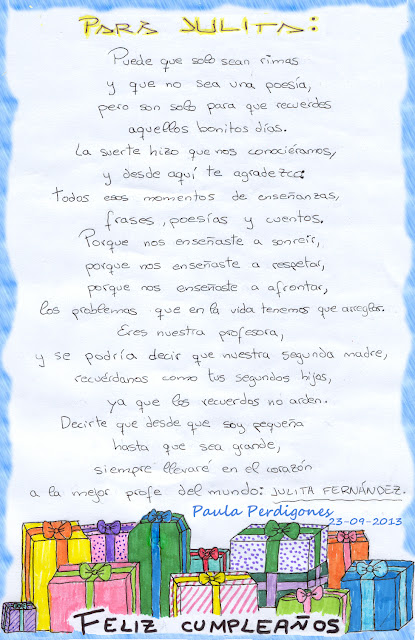 PARA JULITA:
Puede que solo sean rimas
y que no sea una poesía,
pero son solo para que recuerdes
aquellos bonitos días.
La suerte hizo que nos conociéramos,
y desde aquí te agradezco
Todos esos momentos de enseñanzas,
frases, poesías y cuentos.
Porque nos enseñaste a sonreír,
porque nos enseñaste a respetar,
porque nos enseñaste a afrontar,
los problemas que en la vida tenemos que arreglar.
Eres nuestra profesora,
y se podría decir que nuestra segunda madre,
recuérdanos como tus segundos hijos,
ya que los recuerdos no arden.
Decirte que desde que soy pequeña
hasta que sea grande,
siempre llevaré en el corazón
a la mejor profe del mundo: JULITA FERNÁNDEZ.
Paula Perdigones
23-09-2013
FELIZ CUMPLEAÑOS